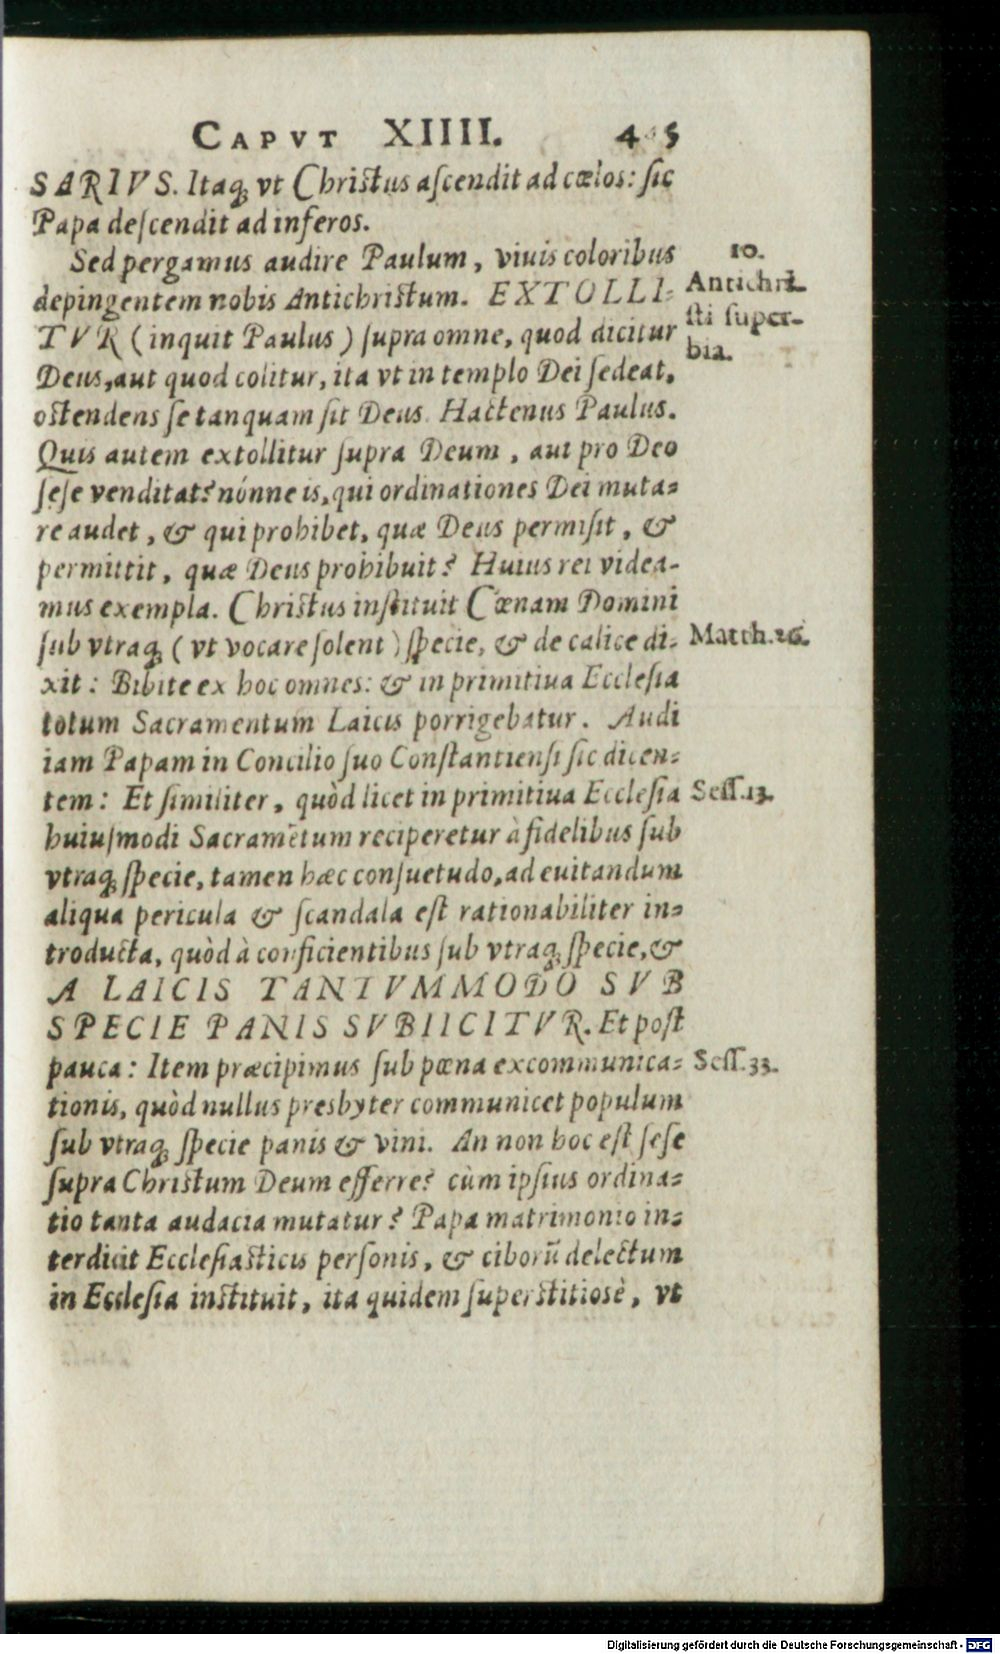 CAPVT XIIII. 4 5
SARIVS. Itaq; vt Christus ascendit ad cœlos: sic
Papa descendit ad inferos.
Sed pergamus audire Paulum, viuis coloribus
depingentem nobis Antichristum. EXTOLLI-
TVR (inquit Paulus) supra omne, quod dicitur
Deus, aut quod colitur, ita vt in templo Dei sedeat,
ostendens se tanquam sit Deus. Hactenus Paulus.
Quis autem extollitur supra Deum, aut pro Deo
sese venditat? nónne is, qui ordinationes Dei muta-
re audet, & qui prohibet, quæ Deus permisit, &
permittit, quæ Deus prohibuit? Huius rei videa-
mus exempla. Christus instituit Cœnam Domini
sub vtraq; (vt vocare solent) specie, & de calice di-
xit: Bibite ex hoc omnes: & in primitiua Ecclesia
totum Sacramentum Laicis porrigebatur. Audi
iam Papam in Concilio suo Constantiensi sic dicen-
tem: Et similiter, quòd licet in primitiua Ecclesia
huiusmodi Sacramẽtum reciperetur à fidelibus sub
vtraq; specie, tamen hæc consuetudo, ad euitandum
aliqua pericula & scandala est rationabiliter in-
troducta, quòd à conficientibus sub vtraq; specie, &
A LAICIS TANTVMMODO SVB
SPECIE PANIS SVBIICITVR. Et post
pauca: Item præcipimus sub pœna excommunica-
tionis, quòd nullus presbyter communicet populum
sub vtraq; specie panis & vini. An non hoc est sese
supra Christum Deum efferre? cùm ipsius ordina-
tio tanta audacia mutatur? Papa matrimonio in-
terdicit Ecclesiasticis personis, & ciborũ delectum
in Ecclesia instituit, ita quidem superstitiosè, vt
10.
Antichri-
sti super-
bia.
Matth.26.
Sess.13.
Sess.33.
Digitalisierung gefördert durch die Deutsche Forschungsgemeinschaft - DFG